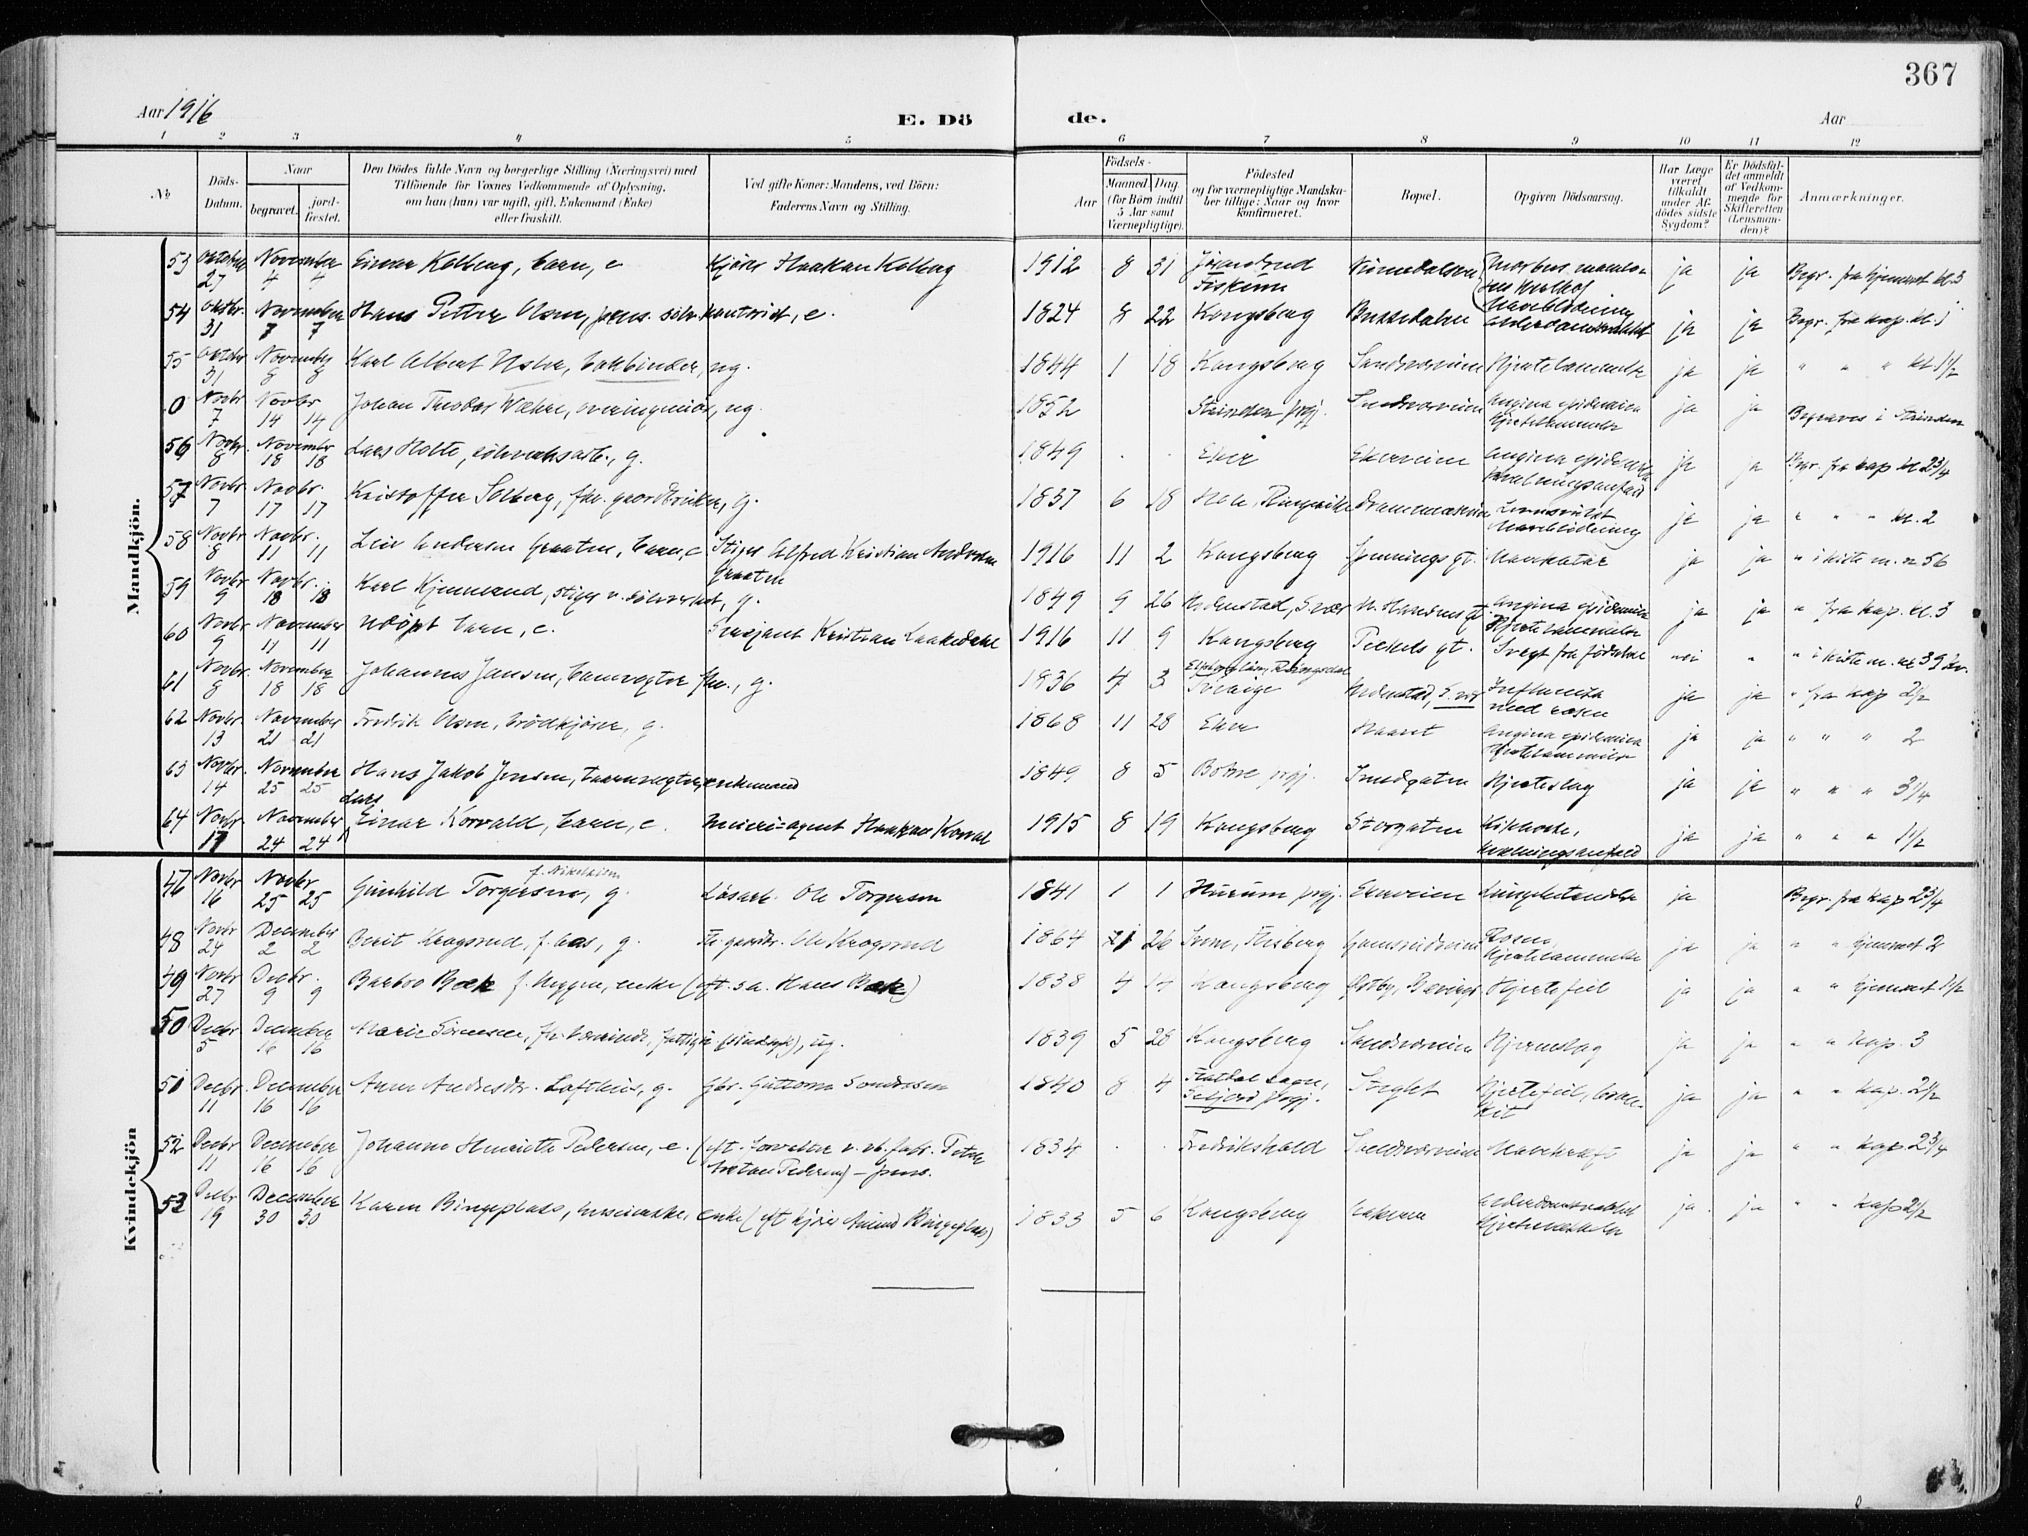 367
Aar 1916
E. Dö
de.
Aar
1 2 3 4 5 6 7 8 9 10 11 12
No
Döds-
Datum.
Naar
begravet.
jord-
fæstet.
Den Dödes fulde Navn og borgerlige Stilling (Næringsvei) med
Tilföiende for Voxnes Vedkommende af Oplysning,
om han (hun) var ugift, gift, Enkemand (Enke)
eller fraskilt.
Ved gifte Koner: Mandens, ved Börn:
Faderens Navn og Stilling.
Födsels-
Aar
Maaned Dag
(for Börn indtil
5 Aar samt
Værnepligtige).
Födested
og for værnepligtige Mandska-
ber tillige: Naar og hvor
konfirmeret.
Bopæl.
Opgiven Dödsaarsag.
Har Læge
været
tilkaldt
under Af-
dödes sidste
Sygdom?
Er Dödsfal-
det anmeldt
af Vedkom-
mende for
Skifteretten
(Lensman-
den)?
Anmærkninger.
Mandkjön.
53 Oktober 27 November 4 4 Einar Kolberg, barn, e Kjører Haakan Kolberg 1912 8 31 Fiskum ja ja Begr. fra hjemmet kl. 3
54 Oktbr. 31 November 7 7 Hans Petter Olsen, pens. sølv. kontorist, e. 1824 8 22 Kongsberg ja ja Begr. fra kap. kl. 1
55 Oktbr 31 November 8 8 Karl Albert Holm, bokbinder, ug. 1844 1 18 Kongsberg Sandsværveien Hjertelammelse ja ja " " " kl 1 1/2
0 Novbr 7 Novbr 14 14 Johan Theodor Wæhre, overingeniør, ug. 1852 Strinden prgj. Sandsværveien Angina epidemica Hjertelammelse ja ja Begraves i Strinden
56 Novbr. 8 November 18 18 Lars Holte, sølvverksarb., g. 1849 . . Eker Ekerveien Angina epidemica Kvælningsanfald ja ja Begr. fra kap kl 2 3/4
57 Novbr 7 Novbr. 17 17 Kristoffer Solberg, fhv. gaardbruker, g. 1837 6 18 Hole, Ringerike Drammensveien ja ja " " " kl. 2
58 Novbr 8 Novbr. 11 11 Leiv Andersen Graaten, barn, e Stiger Alfred Kristian Andersen Graaten 1916 11 2 Kongsberg Hennings gt. ja ja " i kiste m. no 56
59 Novbr 9 Novbr. 18 18 Karl Kjennerud, stiger v. sølvverket, g. 1849 9 26 Hedenstad, S.vær H. Hansens gt. Angina epidemica Hjertelammelse ja ja " fra kap. kl. 3
60 Novbr 9 November 11 11 Udøpt barn, e. Sersjant Kristian Laakedahl 1916 11 9 Kongsberg Peckels gt. Svagt fra fødselen nei " " i kiste m.
61 Novbr. 8 November 18 18 Johannes Jansen, banevogter fhv., g. 1836 4 3 Sverige Hedenstad, S.vær Influensa med rosen ja ja " fra kap 2 1/2
62 Novbr. 13 November 21 21 Fredrik Olsen, brødkjører, g. 1868 11 28 Eker Angina epidemica Hjertelammelse ja ja " " " 2
63 Novbr. 14 November 25 25 Hans Jakob Jensen, taarnvogter, enkemand 1849 8 5 Botne prgj. Smedgaten Hjerteslag ja ja " " " 3 1/4
64 Novbr. 17 November 24 24 Lars Einar Korvald, barn, e. Meieri-agent Haakan Korval 1915 8 19 Kongsberg Storgaten Kikhoste, kvælningsanfald ja ja " " " 1 1/2
Kvindekjön
47 Novbr 16 Novbr 25 25 Gunhild Torgersen, f. Nikolaisen g. Løsarb. Ole Torgersen 1841 1 1 Hurum prgj. Ekerveien Lungebetændelse ja Begr. fra kap 2 3/4
48 Novbr 24 December 2 2 Berit Kragsrud, f. Aas, g. Ole Kragsrud 1864 11 26 Flesberg Gamsrudveien Rosen, Hjertelammelse ja ja " " hjemmet 2
49 Novbr 27 Decbr. 9 9 Barbro Bæk f. Nygen, enke (eft. sa. Hans Bæk) 1838 4 14 Kongsberg Hjertefeil ja ja " " hjemmet 1 1/2
50 Decbr 5 December 16 16 Marie Sørensen, ug. 1839 5 28 Kongsberg Sandsværveien Hjerneslag ja ja " " kap. 3
51 Decbr. 11 December 16 16 Anne Andersdtr. Lofthus, g. Gbr. Guttorm Sondresen 1840 8 4 Flatdal sogn, Seljord prgj. Hjertefeil, bron- kit ja ja " " kap. 2 1/2
52 Decbr 11 December 16 16 Johanne Henriette Pedersen, e. (eft. forvalter v. vb.fabr. Peter Pedersen) – pens. 1834 . . Fredrikshald Sandsværveien Mavekræft ja ja " " kap 2 3/4
53 Decbr 19 December 30 30 Karen Bingeplass, enke (eft kjører Amund Bingeplass) 1833 5 6 Kongsberg Alderdomssvakhet ja ja " " kap 2 1/2